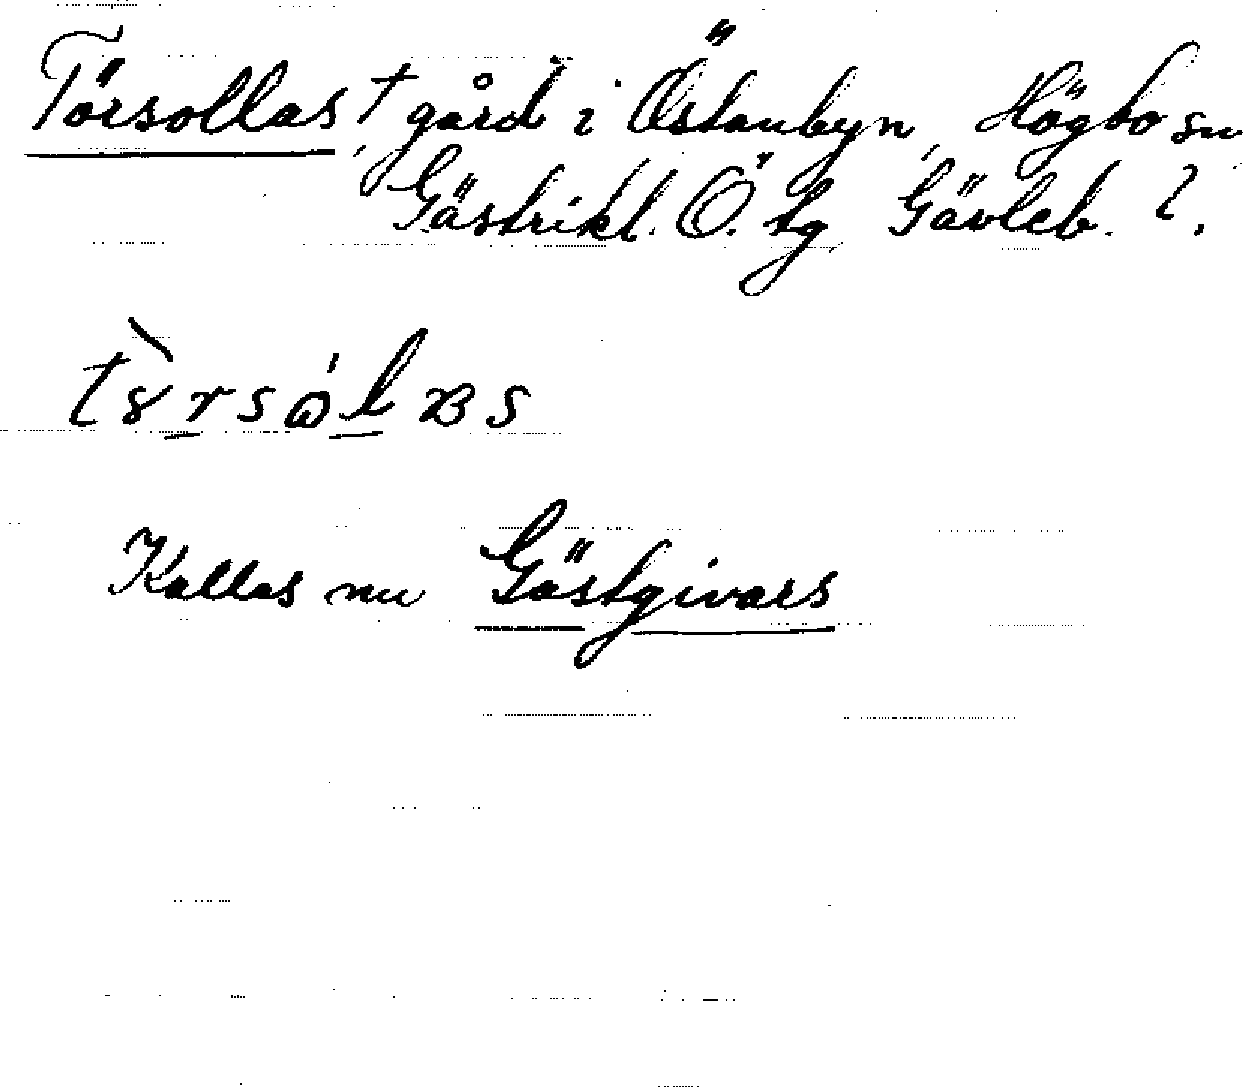 Törsollas, † gård i Östanbyn, Högbo sn
Gästrikl. Ö. tg Gävleb. l.
Kallas nu Gästgivars